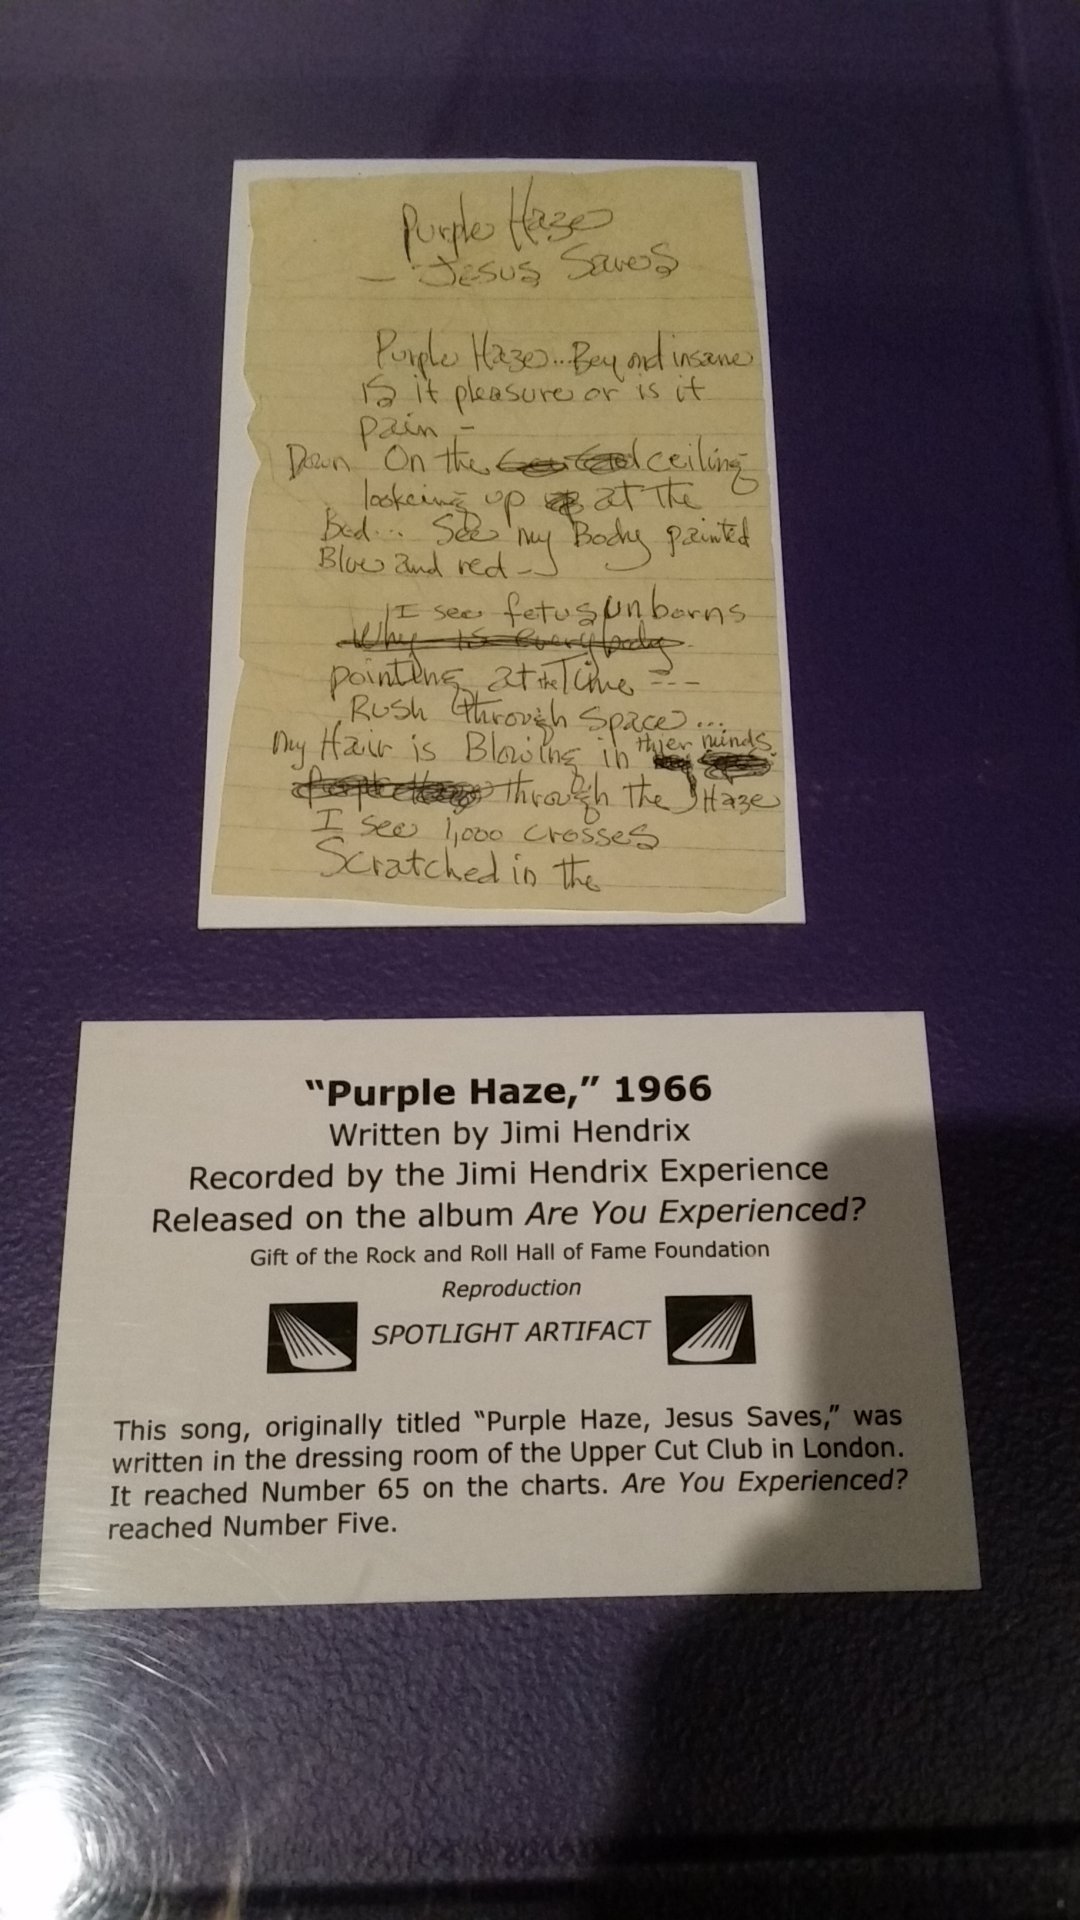 Purple Haze
– Jesus Saves
Purple Haze... Beyond insane
is it pleasure or is it
pain –
Down On the ceiling
lookeing up at The
Bed... See my Body painted
Blue and red –
I see fetus unborns
Why is everybody
pointing at the Time ---
Rush through Space...
my Hair is Blowing in thier minds
Purple Haze through the Haze
I see 1,000 crosses
Scratched in the
“Purple Haze,” 1966
Written by Jimi Hendrix
Recorded by the Jimi Hendrix Experience
Released on the album Are You Experienced?
Gift of the Rock and Roll Hall of Fame Foundation
Reproduction
SPOTLIGHT ARTIFACT
This song, originally titled “Purple Haze, Jesus Saves,” was
written in the dressing room of the Upper Cut Club in London.
It reached Number 65 on the charts. Are You Experienced?
reached Number Five.